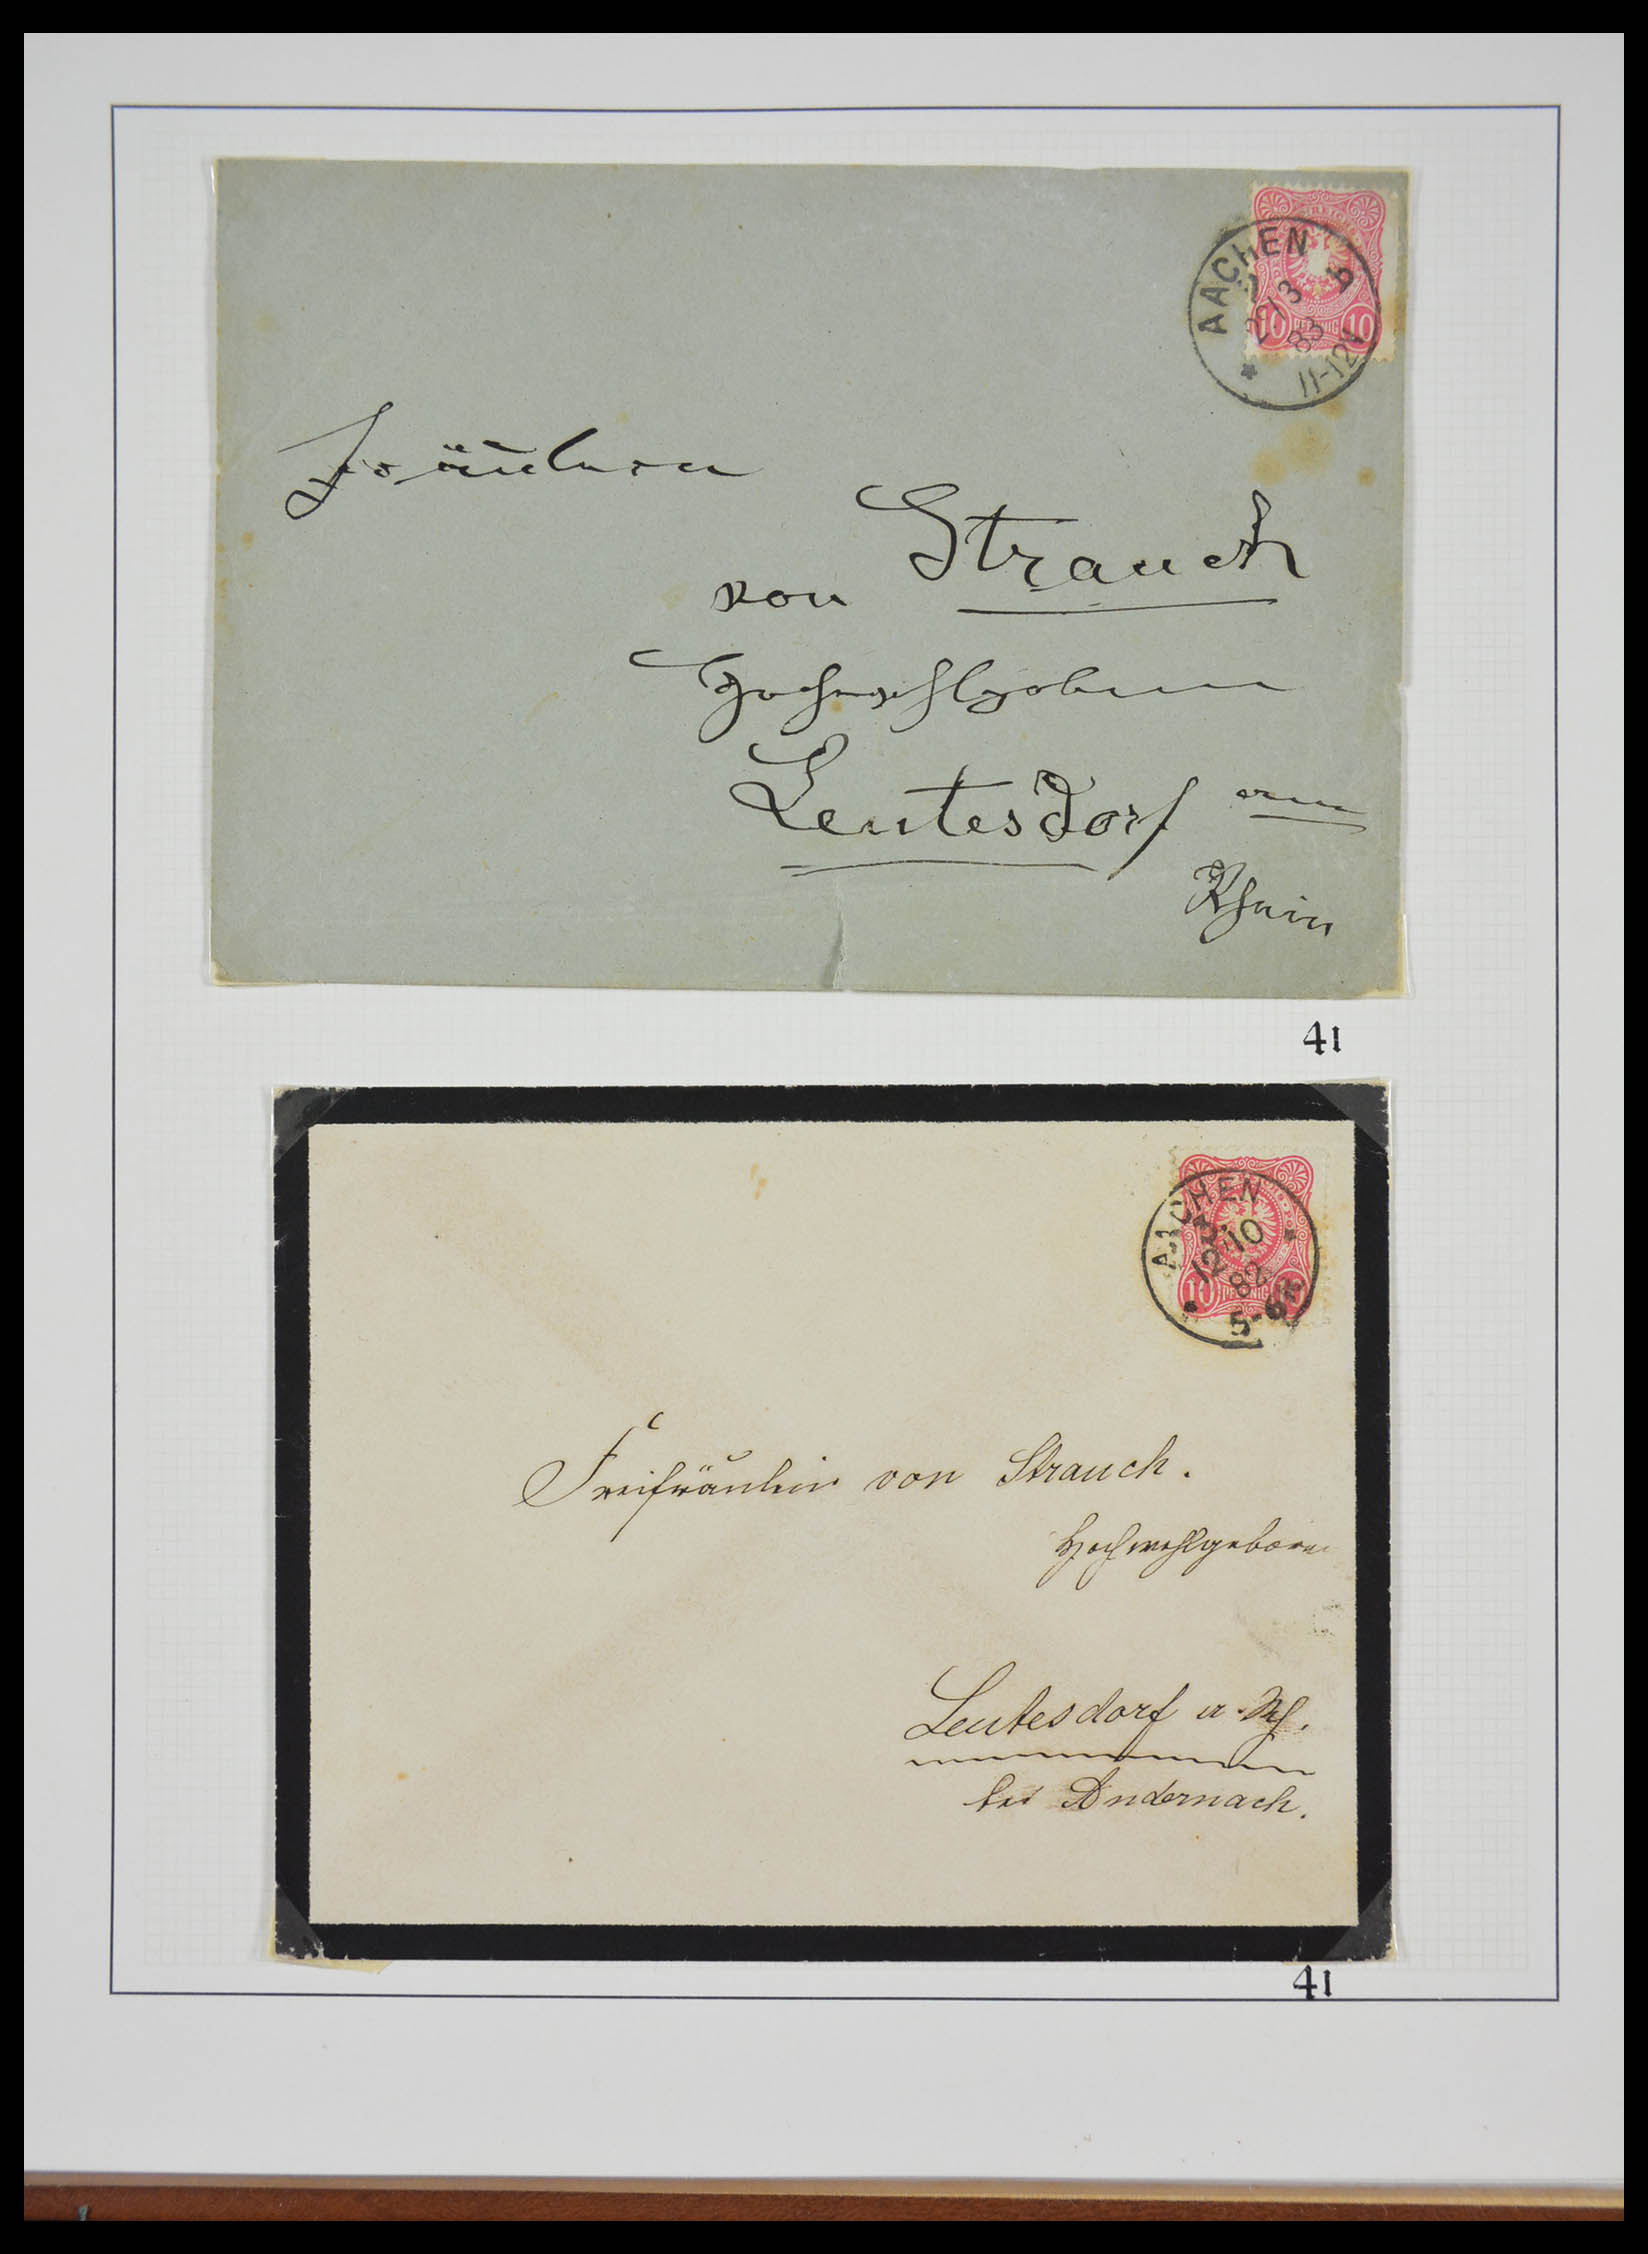 AACHEN b
22/3
83
11-12V
10 PFENNIG 10
Fräulein
von Strauch
Hochwohlgeboren
Leutesdorf am
Rhein
41
AACHEN
12/10
82
10 PFENNIG
Freifräulein von Strauch.
Hochwohlgeboren
Leutesdorf a. Rh.
bei Andernach.
41